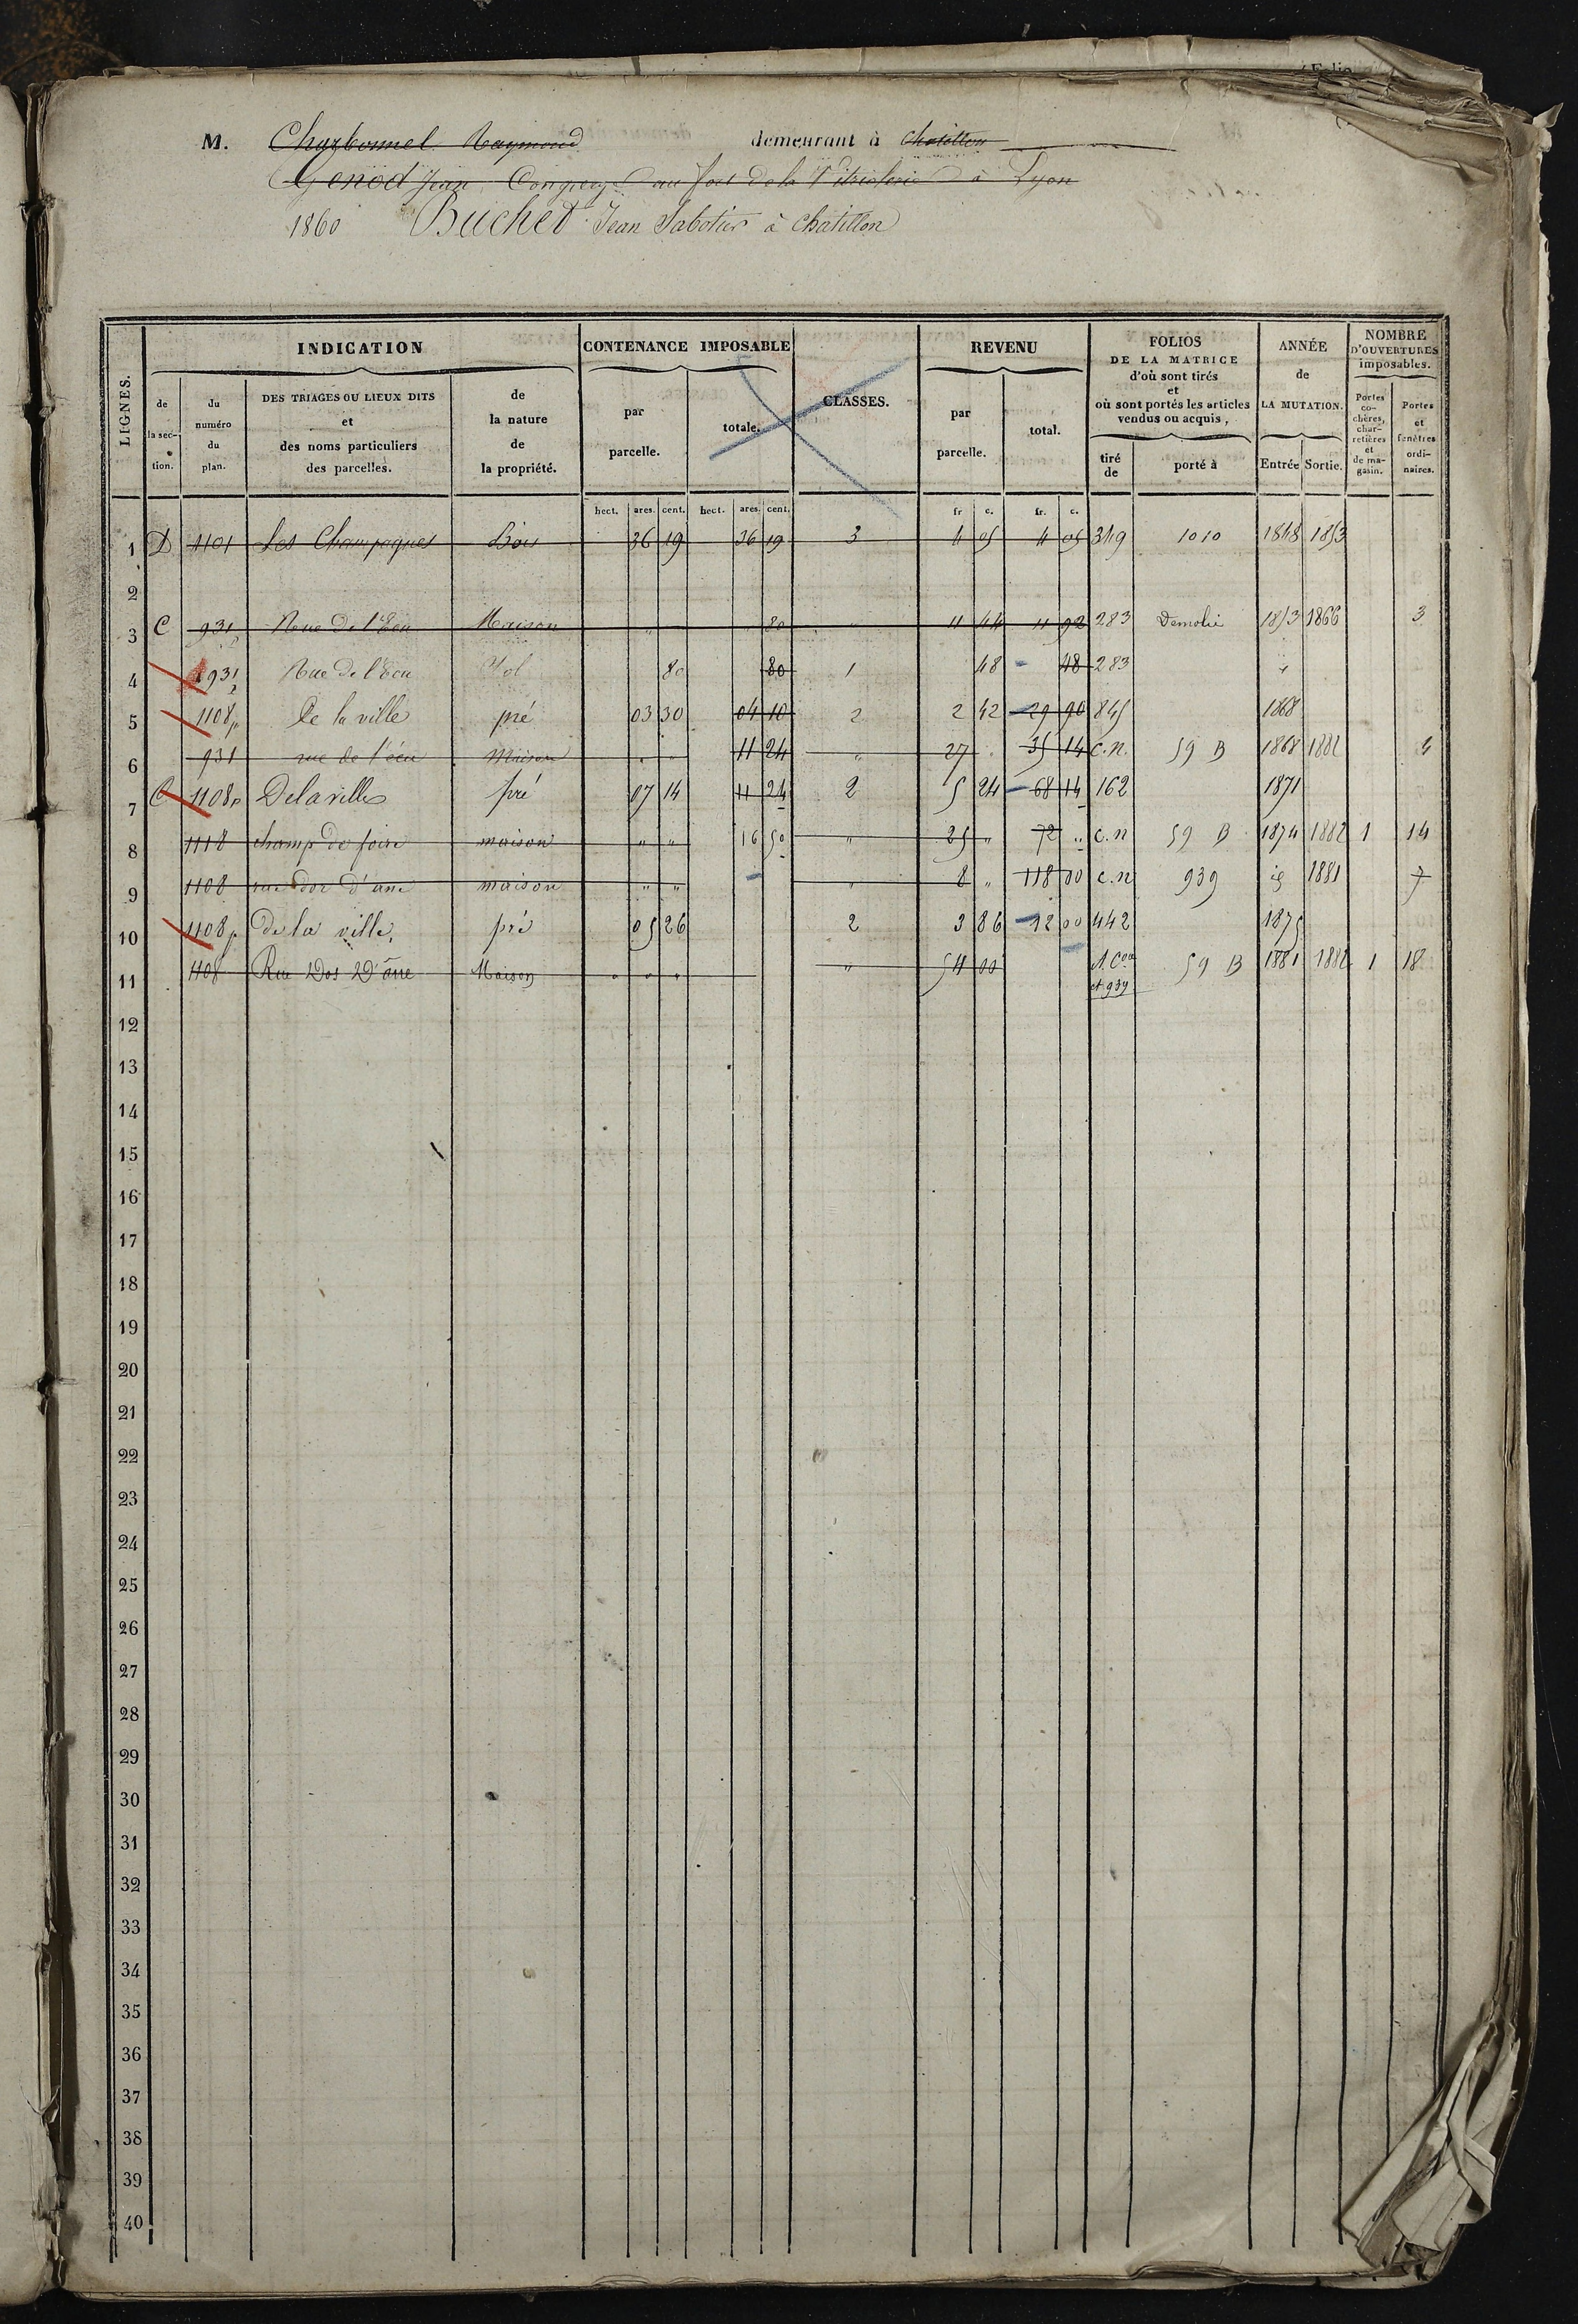 Folio
M. Charbonnel Raymond demeurant à Chatillon
Genod Jean au fort de la Vitriolerie à Lyon
1860 Buchet Jean Sabotier à Chatillon
LIGNES.
INDICATION
de la section.
du numéro du plan.
DES TRIAGES OU LIEUX DITS et des noms particuliers des parcelles.
de la nature de la propriété.
CONTENANCE IMPOSABLE
par parcelle.
totale.
CLASSES.
REVENU
par parcelle.
total.
FOLIOS DE LA MATRICE d'où sont tirés et où sont portés les articles vendus ou acquis,
tiré de
porté à
ANNÉE de LA MUTATION.
Entrée Sortie.
NOMBRE D'OUVERTURES imposables.
Portes cochères, charretières et de magasin.
Portes et fenêtres ordinaires.
hect. ares. cent. hect. ares. cent. fr c. fr. c.
1 D 1101 Les Champagnes Bois 36 19 36 19 3 4 05 4 05 349 1010 1848 1853
2
3 C 931 Rue de l'Ecu Maison " 80 " 11 44 11 92 283 Demolie 1853 1866 3
4 931 Rue de l'Ecu Sol 80 80 1 48 48 283
5 1108 p De la ville pré 03 30 04 10 2 2 42 29 90 845 1868
6 931 rue de l'écu Maison " " 11 24 " 27 " 35 14 C.n. 59 B 1868 1882
7 C 1108 p De la ville pré 07 14 11 24 2 5 24 68 14 162 1871
8 1118 champ de foire maison " " 16 50 " 25 " 72 " C.n 59 B 1874 1882 1 14
9 1108 rue dos d'ane maison " " " 8 " 118 00 C.n 939 1881 7
10 1108 p de la ville, pré 05 26 2 3 86 12 00 442 1875
11 1108 Rue Dos D'âne Maison " " " " 54 00 N. Con et 939 59 B 1881 1882 1 18
12
13
14
15
16
17
18
19
20
21
22
23
24
25
26
27
28
29
30
31
32
33
34
35
36
37
38
39
40